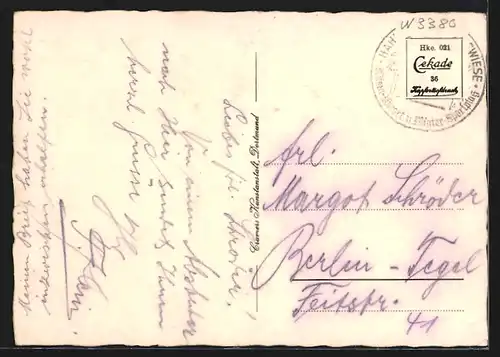 W 3380
Hke. 021
Cekade
36
Kupfertiefdruck
WIESE
Winter-Sportplatz
Frl.
Margot Schröder
Berlin - Tegel
Veitstr.
41
Cramers Kunstanstalt, Dortmund
Liebes Frl. Schröder!
Von einem Abstecher
nach hier sendet Ihnen
herzl. Grüsse Ihr
Meinen Brief haben Sie wohl
inzwischen erhalten.